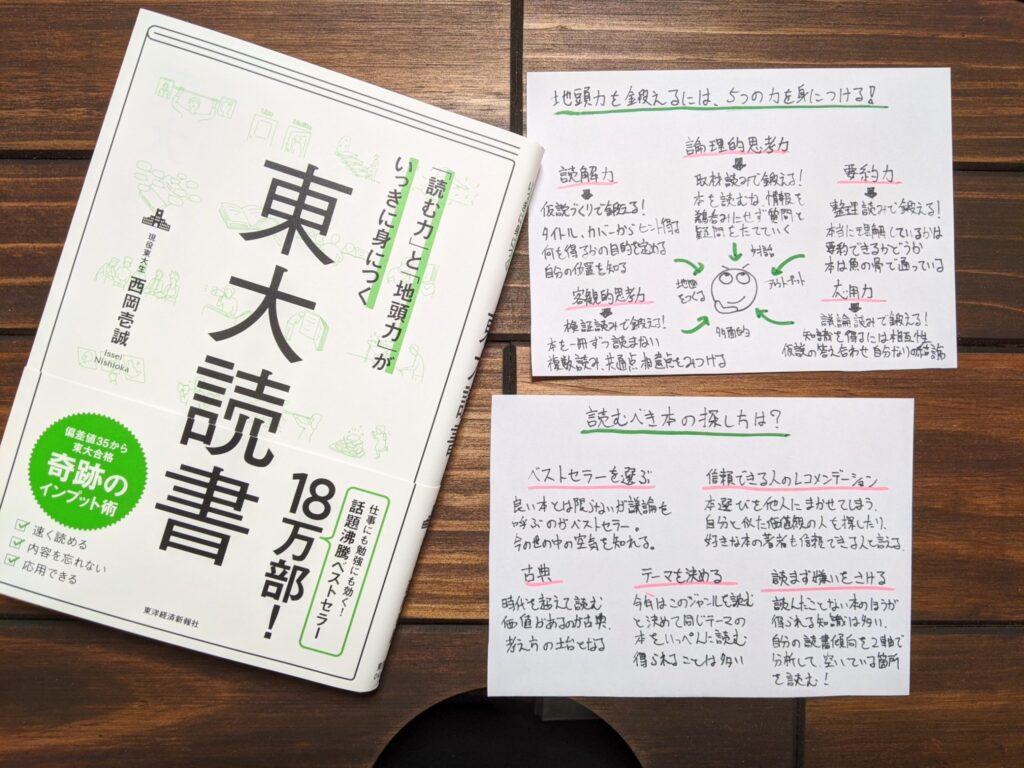 「読む力」と「地頭力」が
いっきに身につく
東大読書
現役東大生 西岡壱誠
Issei
Nishioka
偏差値35から
東大合格
奇跡の
インプット術
速く読める
内容を忘れない
応用できる
18万部！
仕事にも勉強にも効く！
話題沸騰ベストセラー
東洋経済新報社
地頭力を鍛えるには、5つの力を身につける！
論理的思考力
取材読みで鍛える！
本を読むね、情報を
鵜呑みにせず質問と
疑問をたてていく
読解力
仮説づくりで鍛える！
タイトル、カバーからヒント得る
何を得るかの目的を定める
自分の位置を知る
要約力
整理読みで鍛える！
本当に理解しているかは
要約できるかどうか
本は魚の骨で通っている
対話
地図
をつくる
アウトプット
多面的
客観的思考力
検証読みで鍛える！
本を一冊ずつ読まない
複数読み、共通点 相違点をみつける
応用力
議論読みで鍛える！
知識を得るには相互性
仮説の答え合わせ 自分なりの結論
読むべき本の探し方は？
ベストセラーを選ぶ
良い本とは限らないが議論を
呼ぶのがベストセラー。
今の世の中の空気を知れる。
信頼できる人のレコメンデーション
本選びを他人にまかせてしまう
自分と似た価値観の人を探したり、
好きな本の著者も信頼できる人と言える
古典
時代を超えて読む
価値があるのが古典
考え方の土台となる
テーマを決める
今年はこのジャンルを読む
と決めて同じテーマの
本をいっぺんに読む
得られることは多い
読まず嫌いをさける
読んだことない本のほうが
得られる知識は多い
自分の読書傾向を2軸で
分析して、空いている箇所
を読え！